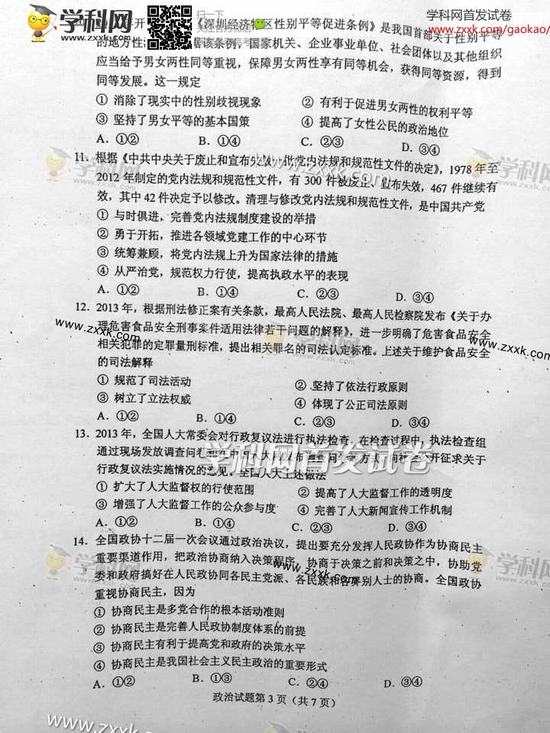 学科网
www.zxxk.com
扫一下
学科网首发试卷
www.zxxk.com/gaokao/
《深圳经济特区性别平等促进条例》是我国首部关于性别平等
的地方性法
该条例,国家机关、企业事业单位、社会团体以及其他组织
应当给予男女两性同等重视,保障男女两性享有同等机会,获得同等资源,得到
同等发展。这一规定
① 消除了现实中的性别歧视现象 ② 有利于促进男女两性的权利平等
③ 坚持了男女平等的基本国策 ④ 提高了女性公民的政治地位
A. ①② B. ①④ C. ②③ D. ③④
11. 根据《中共中央关于废止和宣布失效一批党内法规和规范性文件的决定》,1978 年至
2012 年制定的党内法规和规范性文件,有 300 件被废止、宣布失效,467 件继续有
效,其中 42 件决定予以修改。清理与修改党内法规和规范性文件,是中国共产党
① 与时俱进,完善党内法规制度建设的举措
② 勇于开拓,推进各领域党建工作的中心环节
③ 统筹兼顾,将党内法规上升为国家法律的措施
④ 从严治党,规范权力行使,提高执政水平的表现
A. ①② B. ①④ C. ②③ D. ③④
12. 2013 年,根据刑法修正案有关条款,最高人民法院、最高人民检察院发布《关于办
理危害食品安全刑事案件适用法律若干问题的解释》,进一步明确了危害食品安全
相关犯罪的定罪量刑标准,提出相关罪名的司法认定标准。上述关于维护食品安全
的司法解释
① 规范了司法活动 ② 坚持了依法行政原则
③ 树立了立法权威 ④ 体现了公正司法原则
A. ①② B. ①④ C. ②③ D. ③④
13. 2013 年,全国人大常委会对行政复议法进行执法检查。在检查过程中,执法检查组
通过现场发放调查问卷
开征求关于
行政复议法实施情况的意见。全国人大上述做法
① 扩大了人大监督权的行使范围 ② 提高了人大监督工作的透明度
③ 增强了人大监督工作的公众参与度 ④ 完善了人大新闻宣传工作机制
A. ①② B. ①④ C. ②③ D. ③④
14. 全国政协十二届一次会议通过政治决议,提出要充分发挥人民政协作为协商民主
重要渠道作用,把政治协商纳入决策程序,协商于决策之前和决策之中,协助党
委和政府搞好在人民政协同各民主党派、各民族和各界别人士的协商。全国政协
重视协商民主,因为
① 协商民主是多党合作的根本活动准则
② 协商民主是完善人民政协制度体系的前提
③ 协商民主有利于提高党和政府的决策水平
④ 协商民主是我国社会主义民主政治的重要形式
A. ①② B. ①③ C. ②④ D. ③④
政治试题第 3 页(共 7 页)